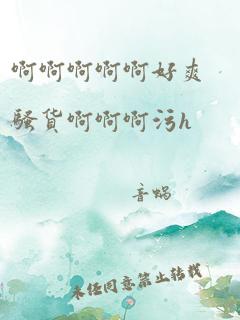 啊啊啊啊啊好爽
骚货啊啊啊污h
音蜗
未经同意禁止转载